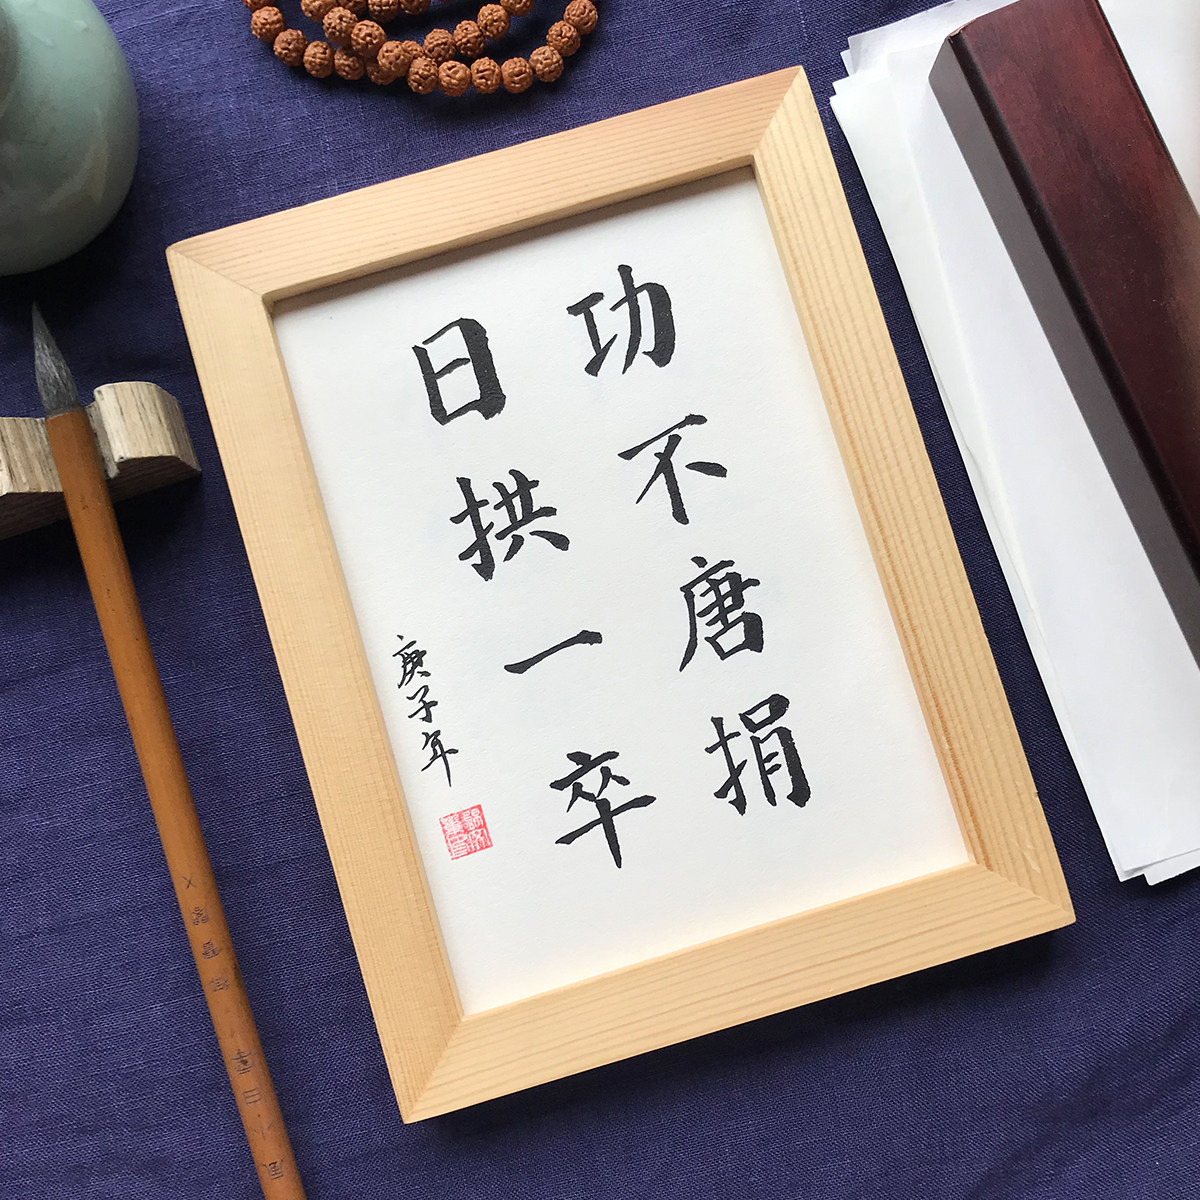 功不唐捐
日拱一卒
庚子年